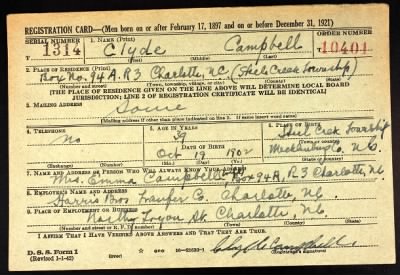 REGISTRATION CARD—(Men born on or after February 17, 1897 and on or before December 31, 1921)
SERIAL NUMBER 1. NAME (Print) ORDER NUMBER
T 1314 Clyde Campbell T 10401
(First) (Middle) (Last)
2. PLACE OF RESIDENCE (Print)
Box No. 94A. R3 Charlotte, N.C. (Steel Creek Township)
(Number and street) (Town, township, village, or city) (County) (State)
[THE PLACE OF RESIDENCE GIVEN ON THE LINE ABOVE WILL DETERMINE LOCAL BOARD
JURISDICTION; LINE 2 OF REGISTRATION CERTIFICATE WILL BE IDENTICAL]
3. MAILING ADDRESS
Same
[Mailing address if other than place indicated on line 2. If same insert word same]
4. TELEPHONE 5. AGE IN YEARS 6. PLACE OF BIRTH
No 39 Steel Creek Township
DATE OF BIRTH (Town or county)
Oct 19 1902 Mecklenburg Co. N.C.
(Exchange) (Number) (Mo.) (Day) (Yr.) (State or country)
7. NAME AND ADDRESS OF PERSON WHO WILL ALWAYS KNOW YOUR ADDRESS
Mrs. Emma Campbell, Box 94A, R3 Charlotte, N.C.
8. EMPLOYER'S NAME AND ADDRESS
Harris Bros Transfer Co. Charlotte, N.C.
9. PLACE OF EMPLOYMENT OR BUSINESS
North Charlotte, N.C.
(Number and street or R. F. D. number) (Town) (County) (State)
I AFFIRM THAT I HAVE VERIFIED ABOVE ANSWERS AND THAT THEY ARE TRUE.
D. S. S. Form 1
(Revised 1-1-42) (over) 16—21630-1 Clyde Campbell